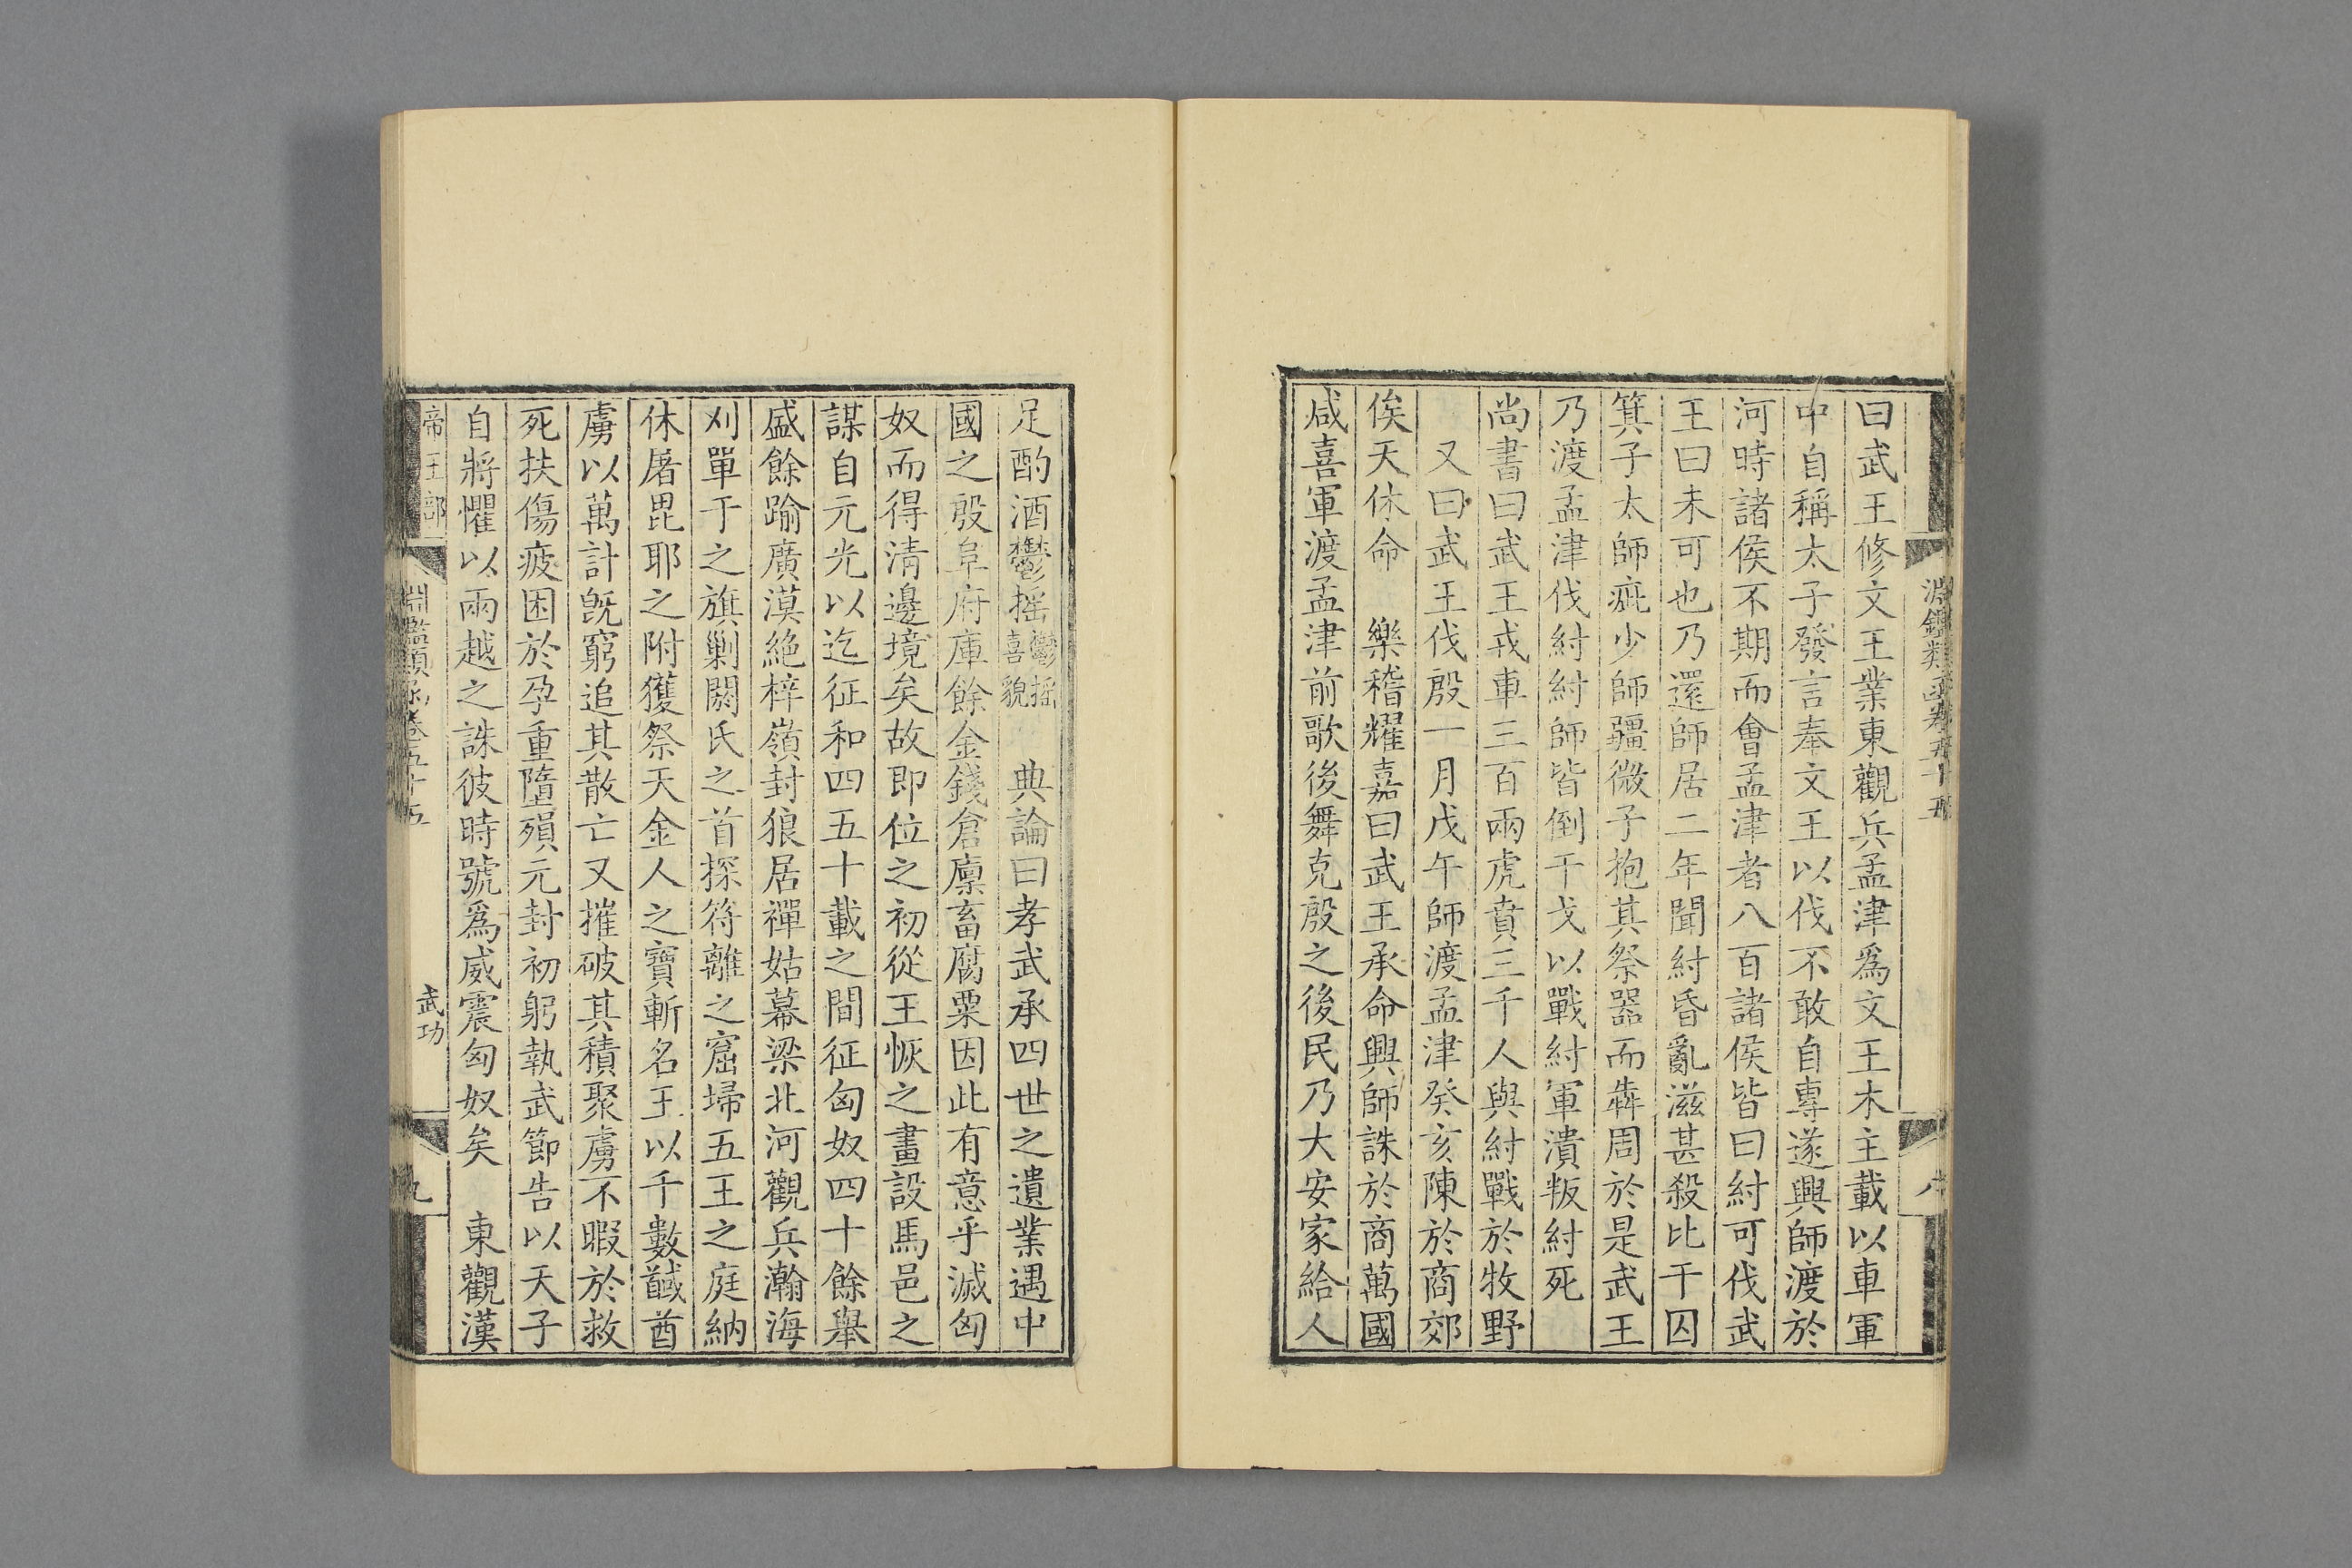 淵鑑類函卷五十五
八
曰武王修文王業東觀兵孟津爲文王木主載以車軍
中自稱太子發言奉文王以伐不敢自專遂興師渡於
河時諸侯不期而會孟津者八百諸侯皆曰紂可伐武
王曰未可也乃還師居二年聞紂昏亂滋甚殺比干囚
箕子太師疵少師疆微子抱其祭器而犇周於是武王
乃渡孟津伐紂紂師皆倒干戈以戰紂軍潰叛紂死
尚書曰武王戎車三百兩虎賁三千人與紂戰於牧野
又曰武王伐殷一月戊午師渡孟津癸亥陳於商郊
俟天休命　樂稽耀嘉曰武王承命興師誅於商萬國
咸喜軍渡孟津前歌後舞克殷之後民乃大安家給人
足酌酒鬱摇鬱摇喜貌　典論曰孝武承四世之遺業遇中
國之殷阜府庫餘金錢倉廩畜腐粟因此有意乎滅匈
奴而得清邊境矣故即位之初從王恢之畫設馬邑之
謀自元光以迄征和四五十載之間征匈奴四十餘舉
盛餘踰廣漠絶梓嶺封狼居禪姑幕梁北河觀兵瀚海
刈單于之旗剿閼氏之首探符離之窟埽五王之庭納
休屠毘耶之附獲祭天金人之寶斬名王以千數馘酋
虜以萬計旣窮追其散亡又摧破其積聚虜不暇於救
死扶傷疲困於孕重墮殞元封初躬執武節告以天子
自將懼以兩越之誅彼時號爲威震匈奴矣　東觀漢
帝王部
淵鑑類函卷五十五
武功
九